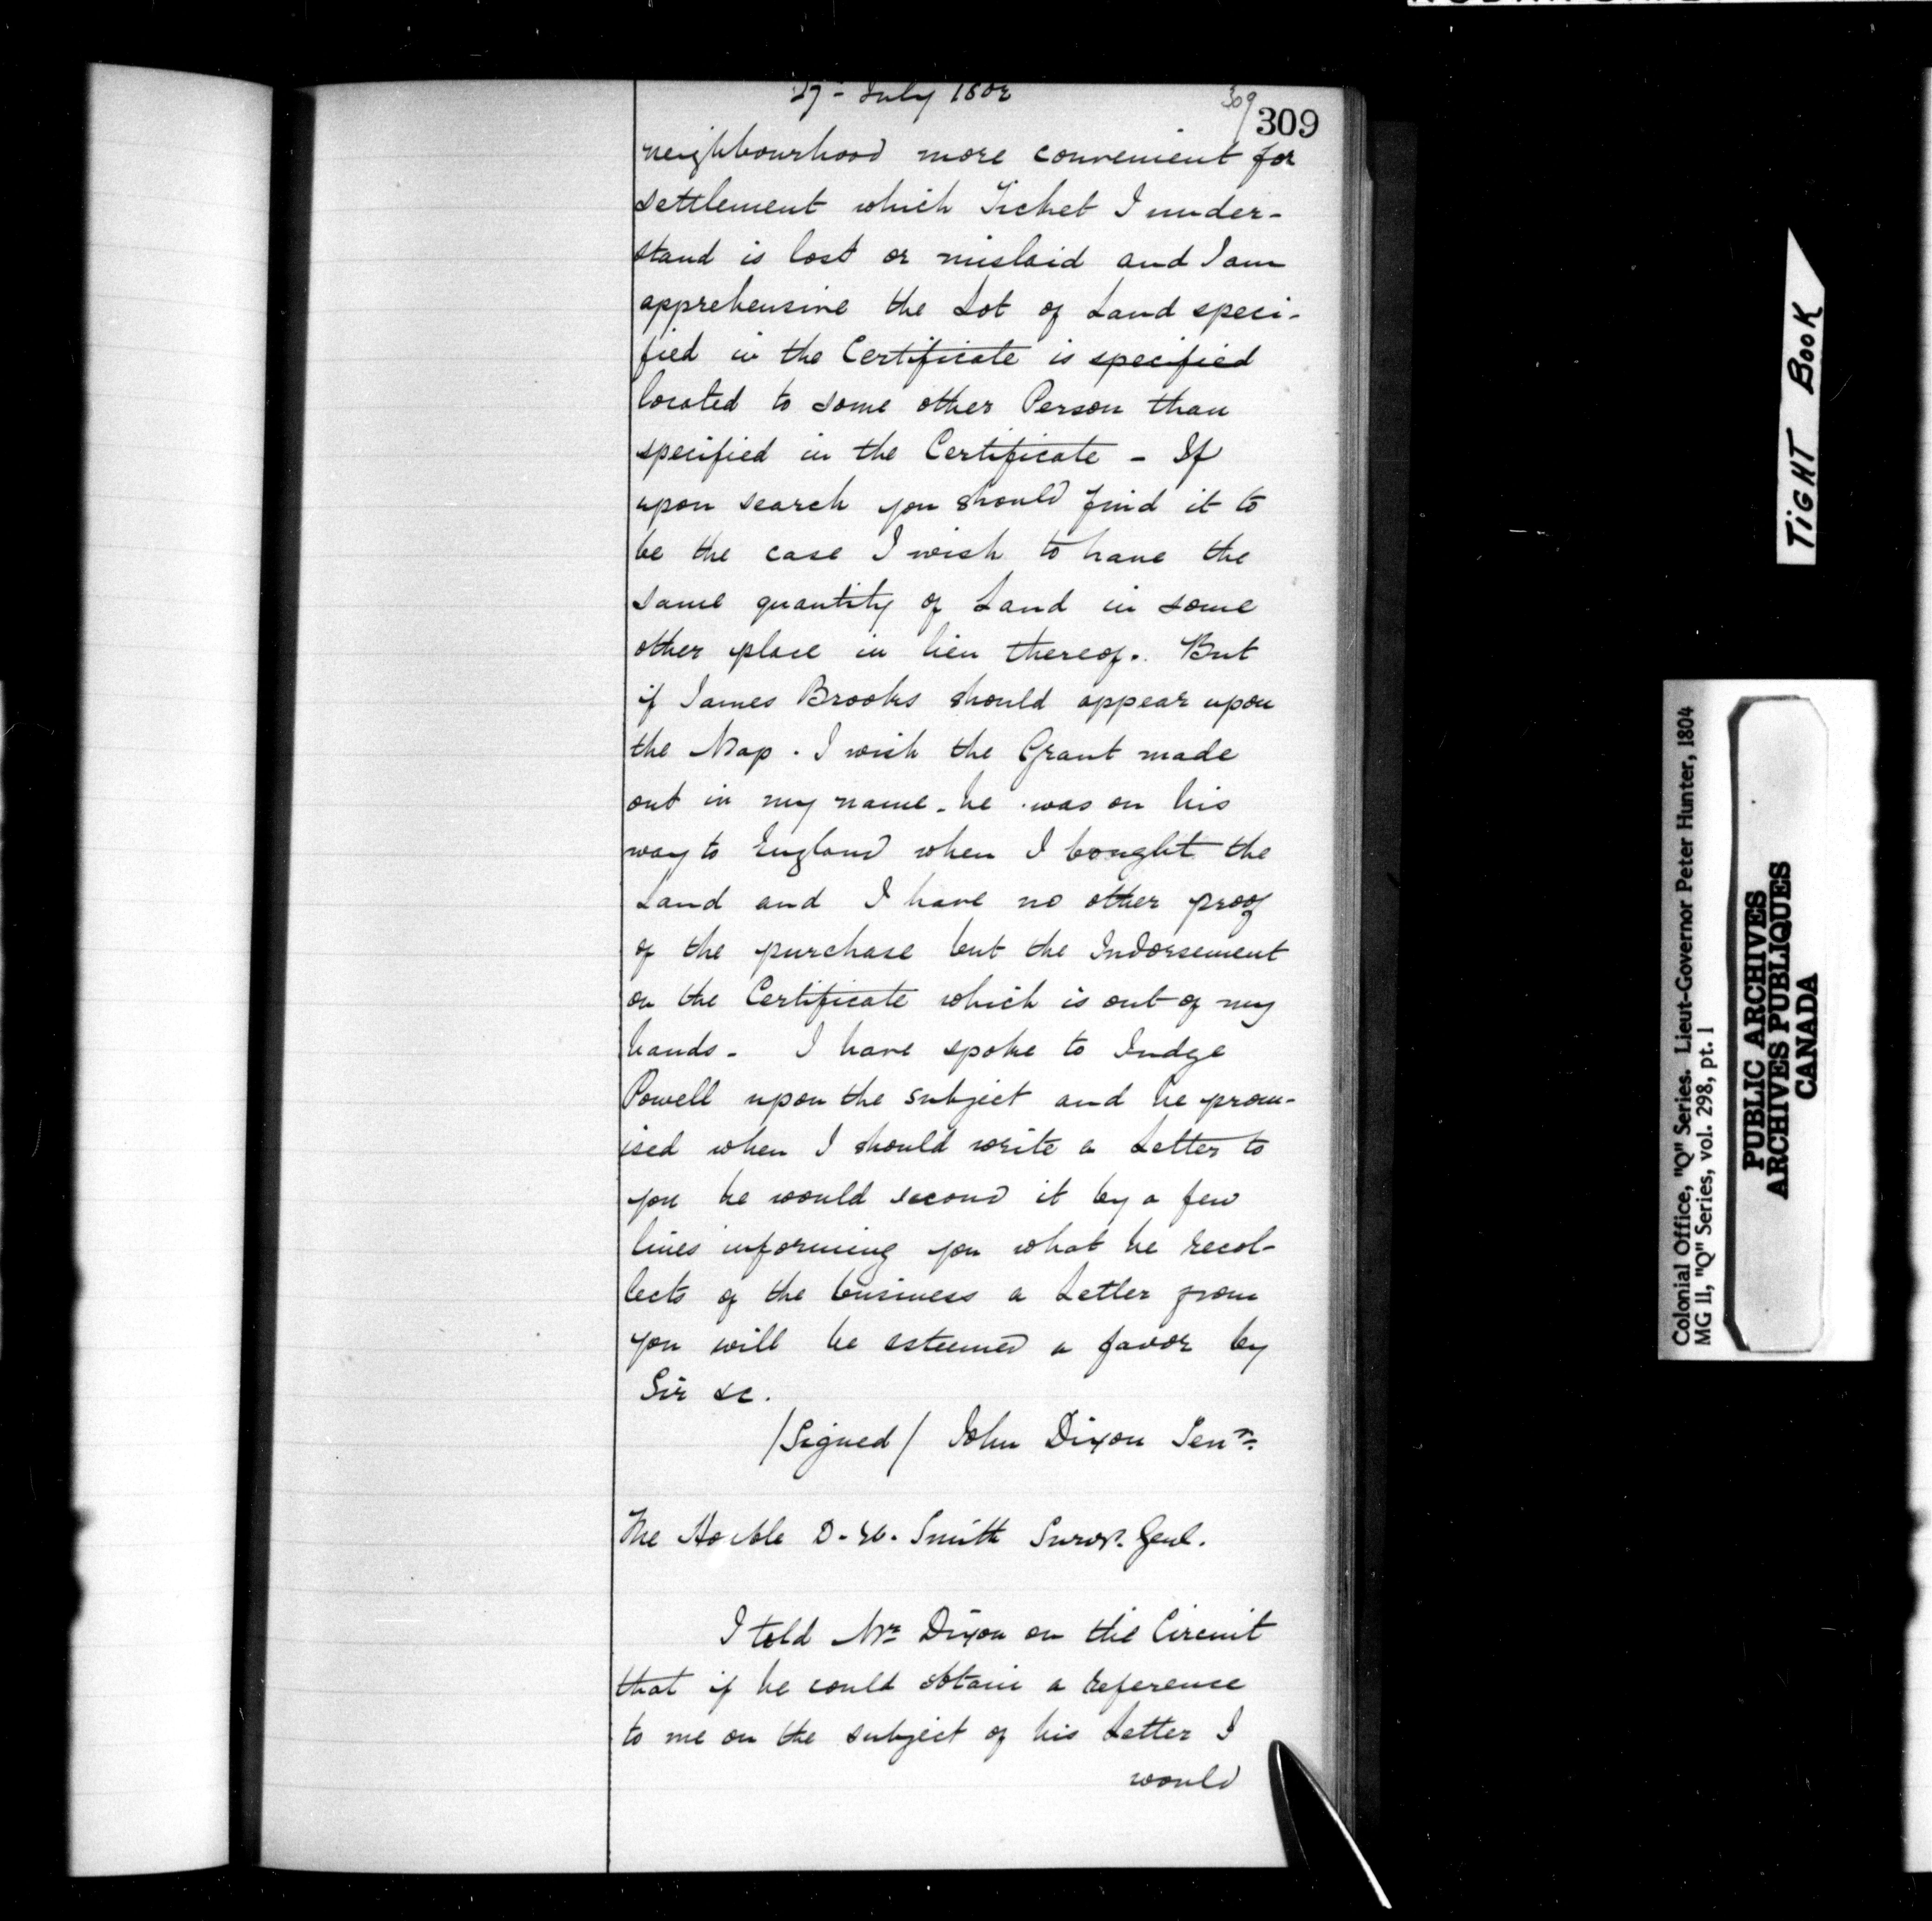 27- July 1802
309
309
neighbourhood more convenient for
settlement which Ticket I under-
stand is lost or mislaid and I am
apprehensive the Lot of Land speci-
fied in the Certificate is specified
located to some other Person than
specified in the Certificate - If
upon search you should find it to
be the case I wish to have the
same quantity of Land in some
other place in lieu thereof. But
if James Brooks should appear upon
the Map. I wish the Grant made
out in my name. he was on his
way to England when I bought the
Land and I have no other proof
of the purchase but the Indorsement
on the Certificate which is out of my
hands. I have spoke to Judge
Powell upon the subject and he prom-
ised when I should write a Letter to
you he would second it by a few
lines informing you what he recol-
lects of the business a Letter from
you will be esteemed a favor by
Sir &c.
/Signed/ John Dixon Senr.
The Honble D. W. Smith Survr. Genl.
I told Mr Dixon on the Circuit
that if he could obtain a reference
to me on the subject of his Letter I
would
TIGHT BOOK
Colonial Office, "Q" Series. Lieut-Governor Peter Hunter, 1804
MG 11, "Q" Series, vol. 298, pt. 1
PUBLIC ARCHIVES
ARCHIVES PUBLIQUES
CANADA